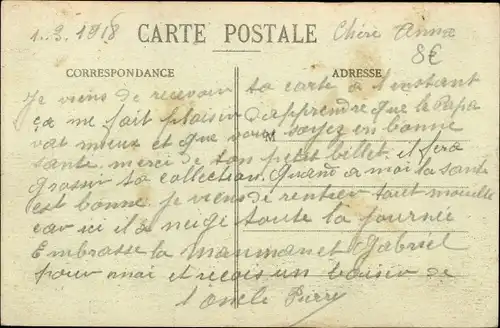 1.3.1918 CARTE POSTALE Chère Anna
8€
CORRESPONDANCE ADRESSE
Je viens de recevoir ta carte a l'instant
ça me fait plaisir d'apprendre que le Papa
vat mieux et que vous soyez en bonne
M
santé. merci de ton petit billet. il fera
grossir ta collection. Quand a moi la santé
est bonne. je viens de rentrer tout mouillé
car ici il a neigé toute la journée
Embrasse la maman et Gabriel
pour moi et reçois un baiser de
l'oncle Pierre